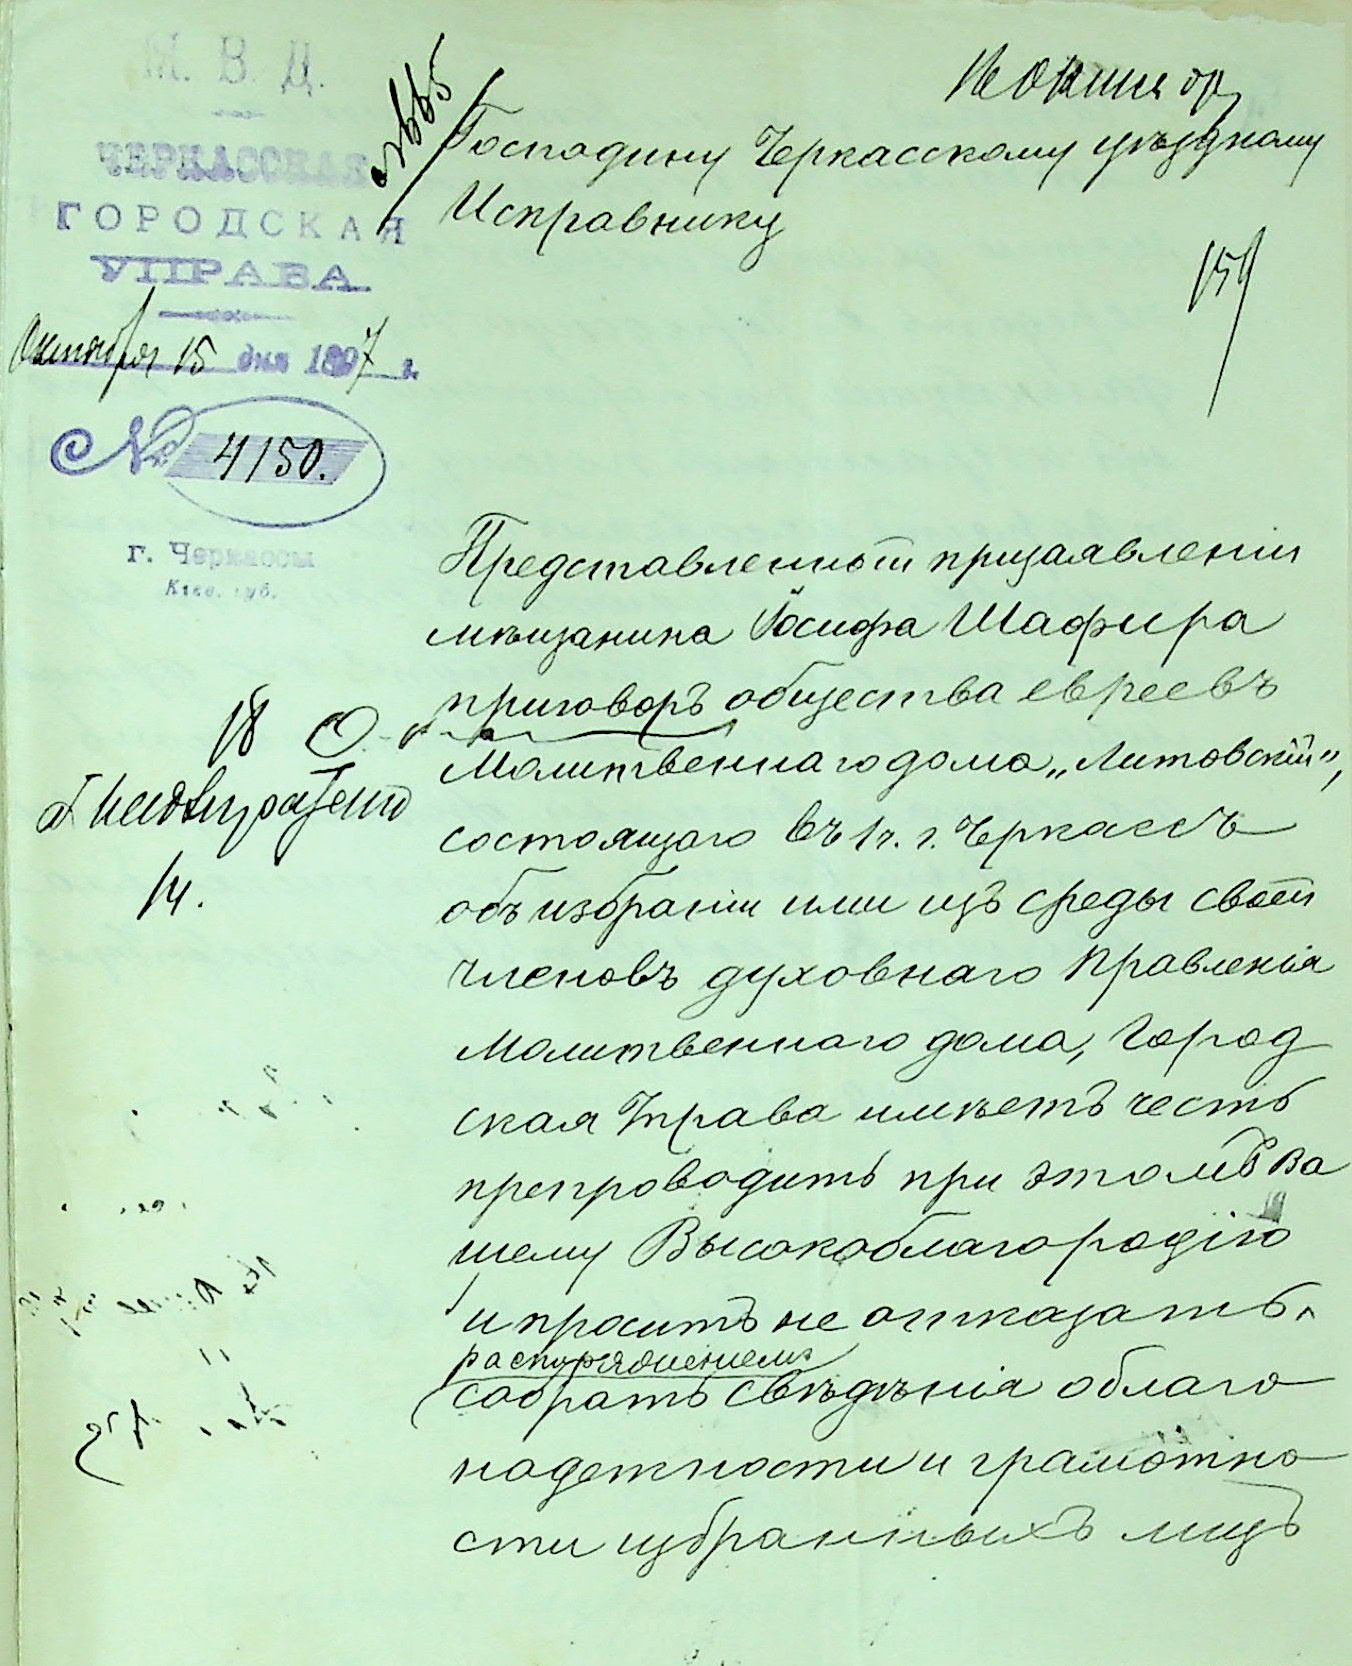 М. В. Д.
ЧЕРКАССКАЯ
ГОРОДСКАЯ
УПРАВА
Октября 15 дня 1897 г.
№ 4150.
г. Черкассы
Кіев. губ.
Господину Черкасскому уѣздному
Исправнику
159
Представленный призаявленіи
мѣщанина Іосифа Шафира
приговоръ общества евреевъ
Молитвеннаго дома „Литовскій",
состоящаго въ 1 ч. г. Черкассъ
объ избраніи ими изъ среды своей
членовъ духовнаго Правленія
Молитвеннаго дома, Город
ская Управа имѣетъ честь
препроводить при этомъ Ва
шему Высокоблагородію
и проситъ не отказать
распоряженіемъ
собрать свѣдѣнія облаго
надежности и грамотно
сти избранныхъ лицъ
18 О.
14.